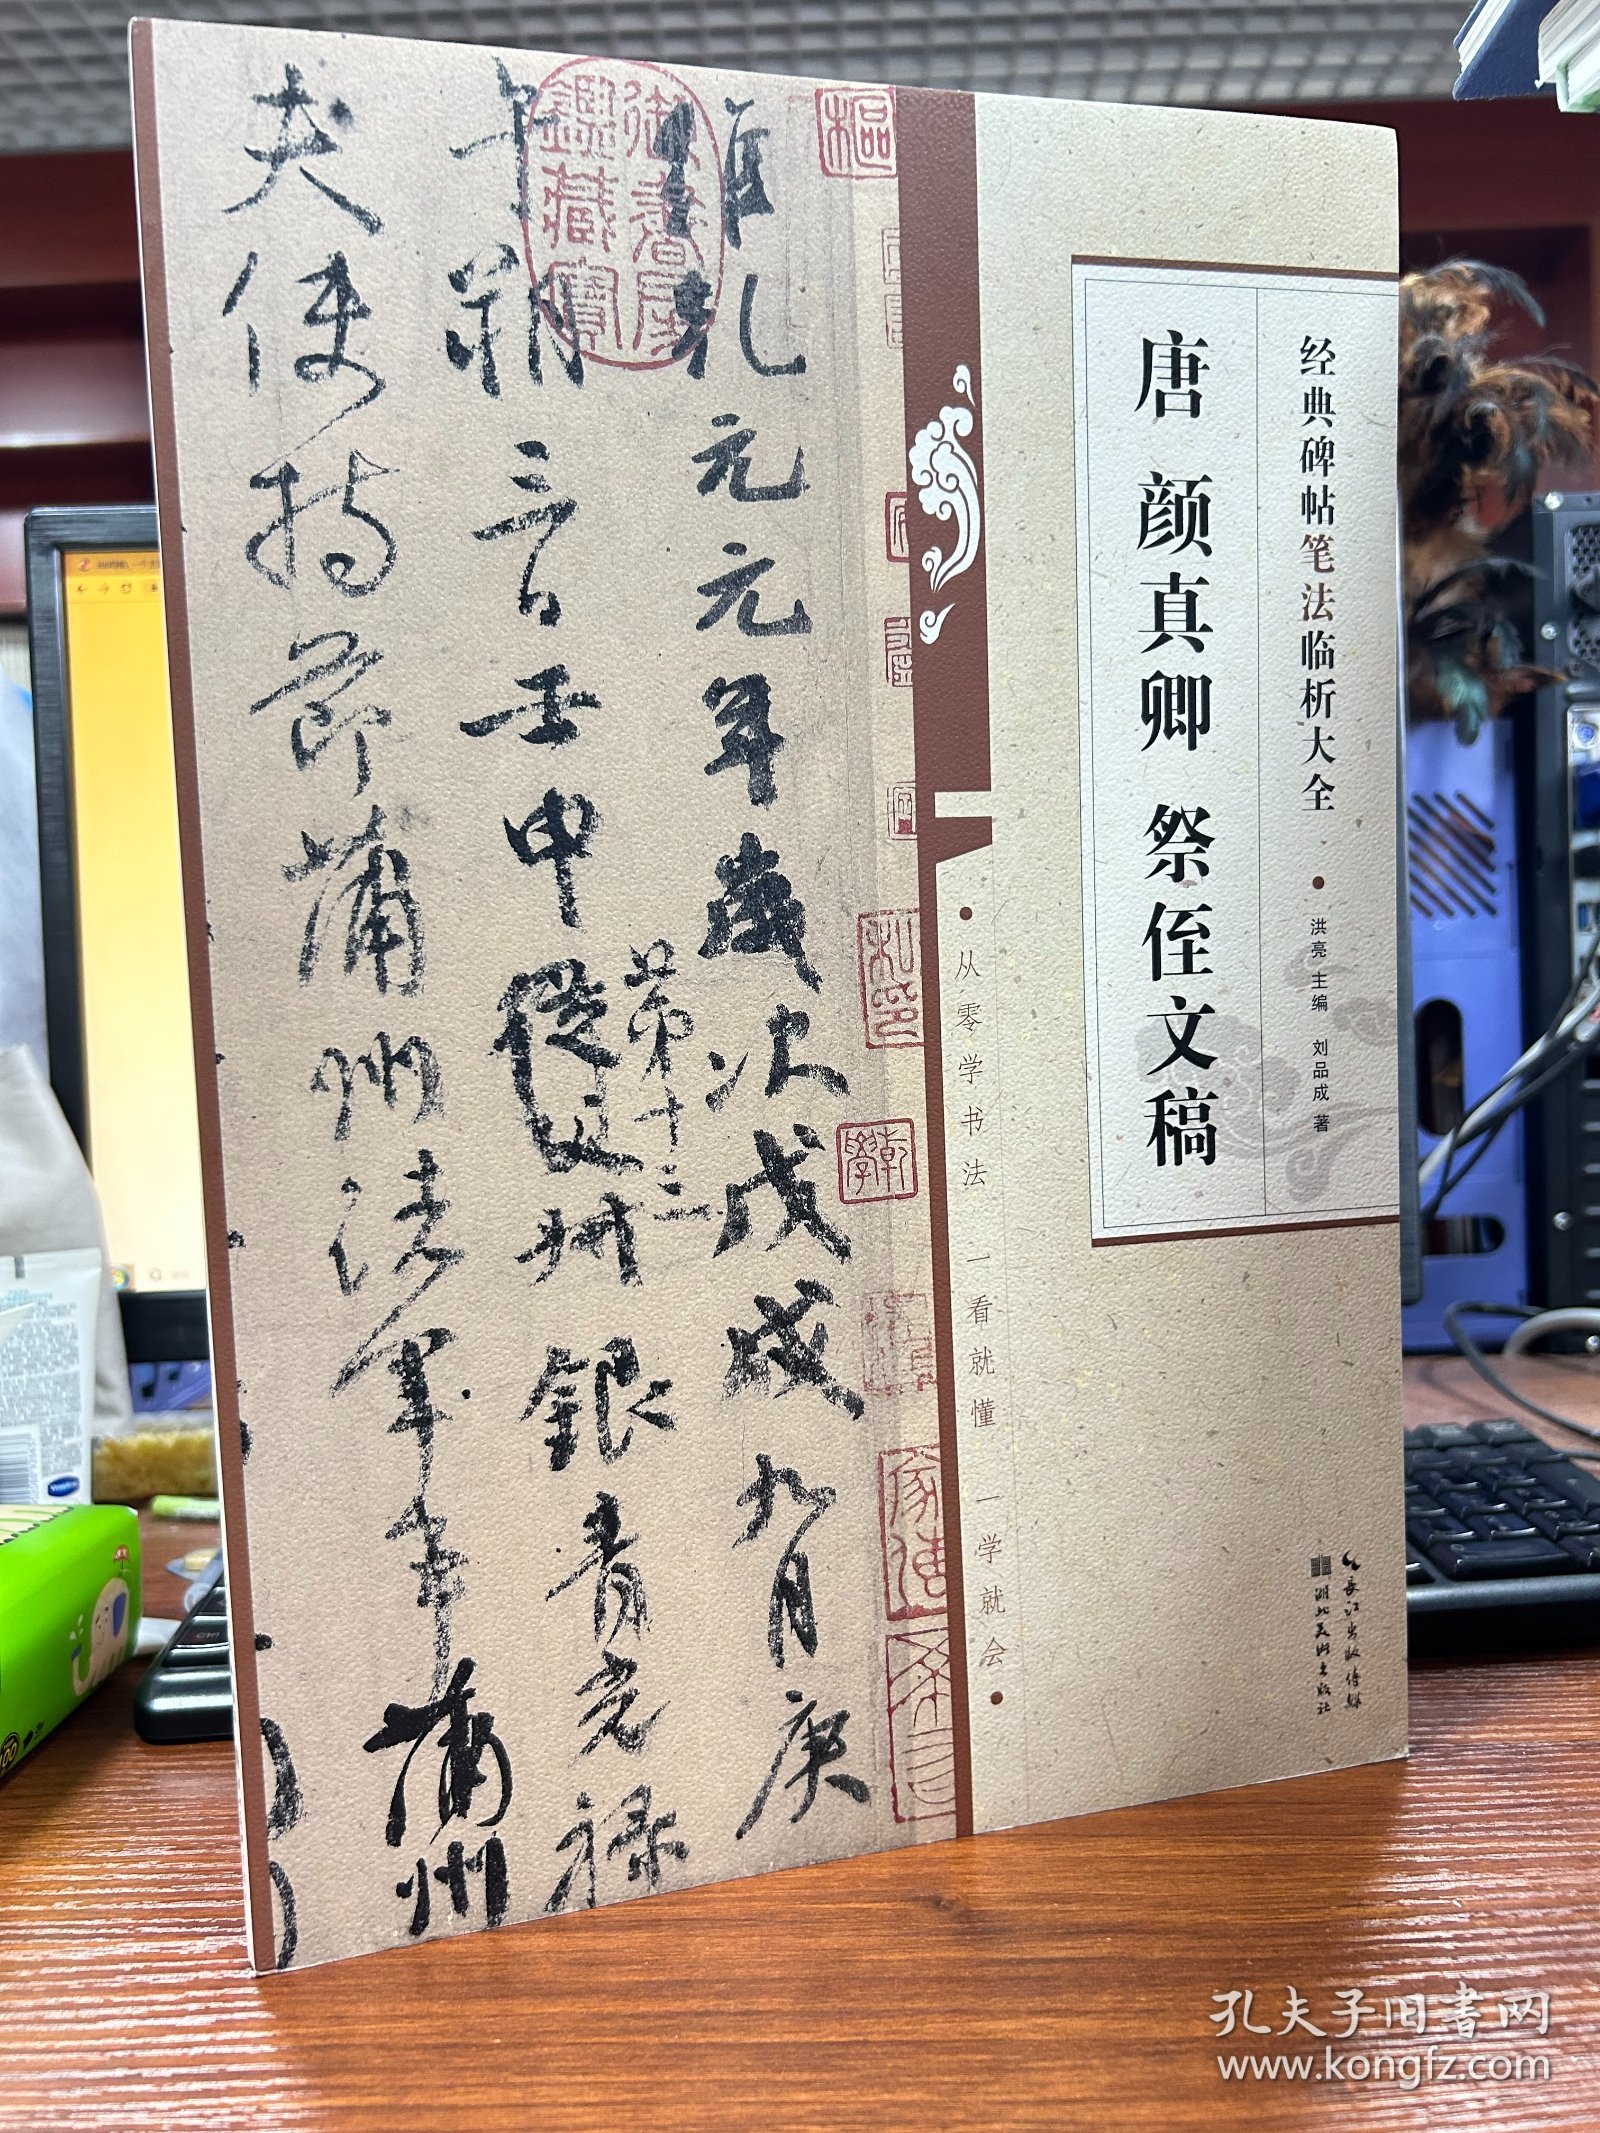 经典碑帖笔法临析大全
洪亮 主编 刘品成 著
唐 颜真卿 祭侄文稿
从零学书法 一看就懂 一学就会
长江出版传媒
湖北美术出版社
維乾元元年歲次戊戌九月庚
午朔三日壬申
第十三
從父
銀青光禄
夫使持節蒲州諸軍事蒲州
御書房鑒藏寶
樞
乾
學
孔夫子旧书网
www.kongfz.com